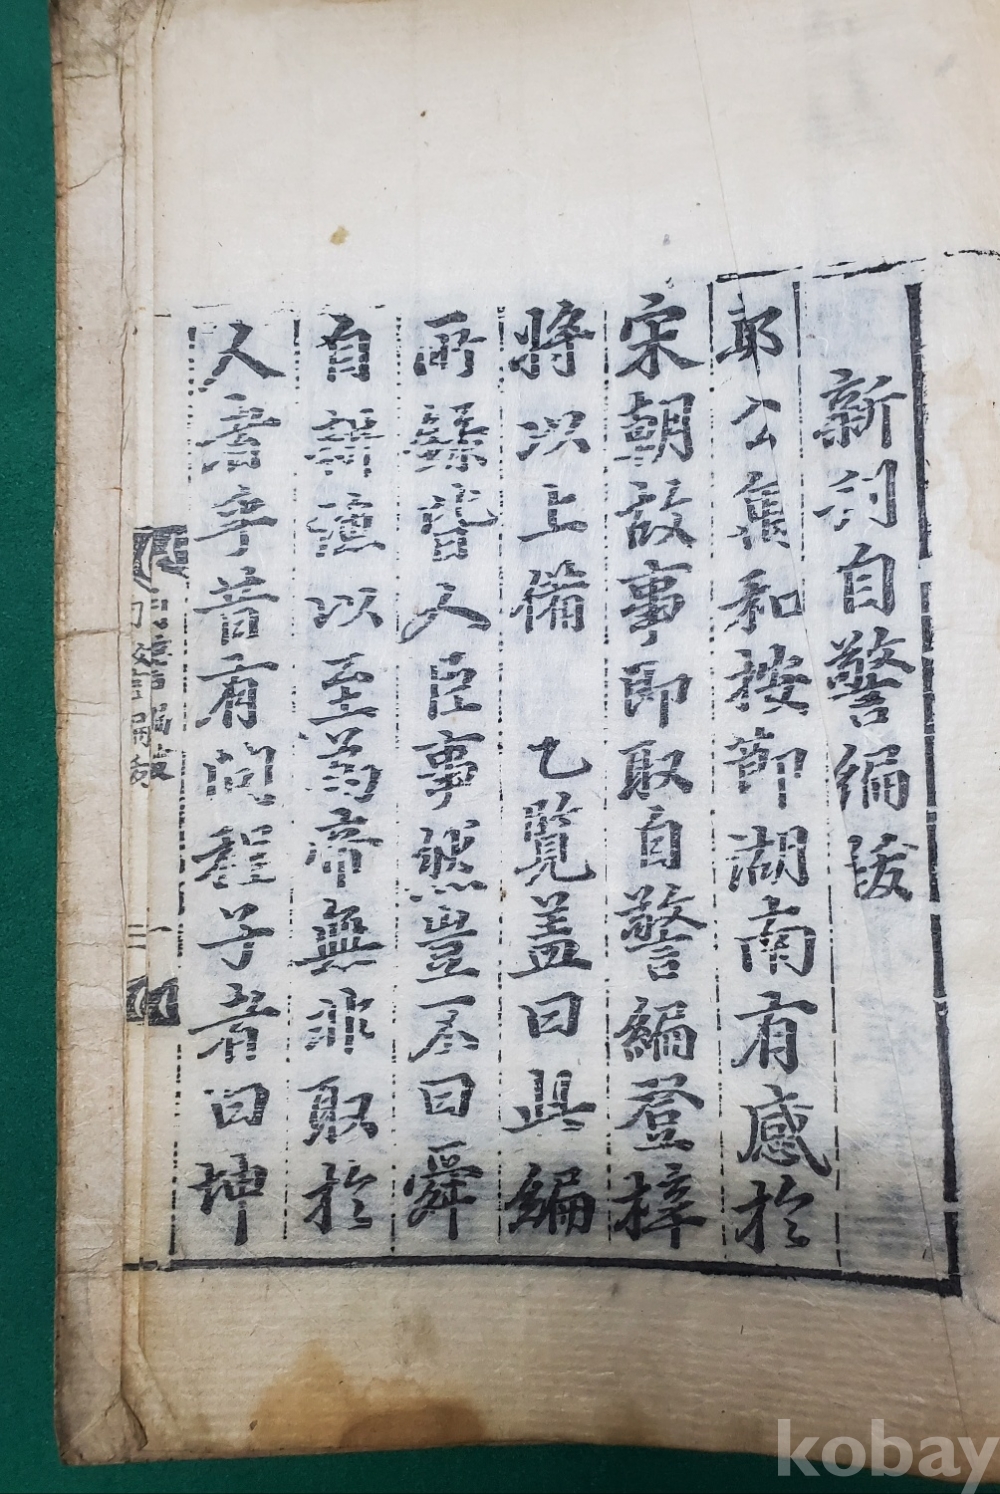 新刊自警編跋
邱公集和按節湖南有感於
宋朝故事即取自警編登梓
將以上備 乙覽盖曰此編
所繇皆人臣事然豈不曰舜
自耕漁以至爲帝無非取於
人者乎昔有問程子者曰坤
自警編跋
一
二
kobay